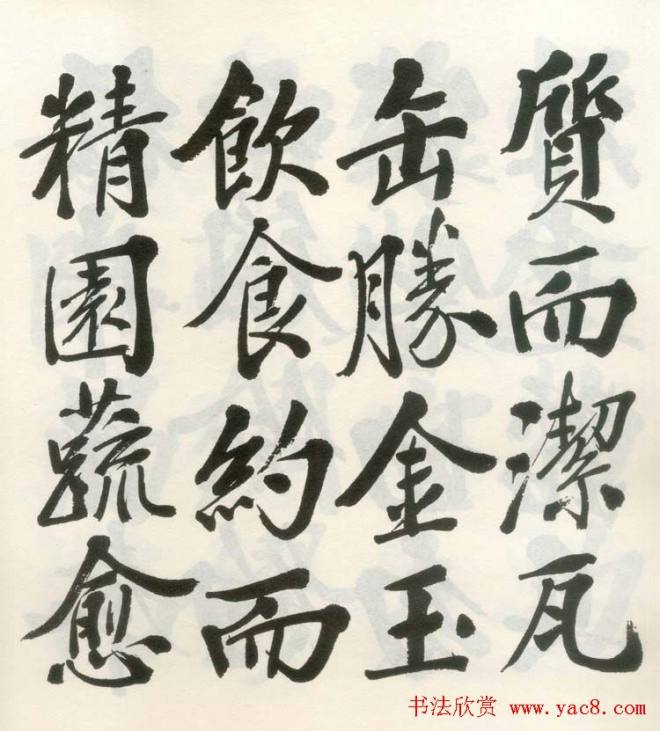 質而潔瓦
缶勝金玉
飲食約而
精園蔬愈
书法欣赏 www.yac8.com